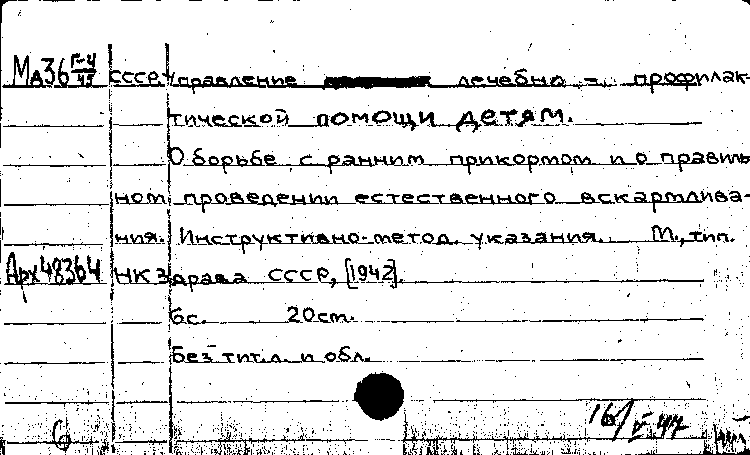 Ма36 Г-4/45 СССР. Управление лечебно = профилак-
тической помощи детям.
О борьбе с ранним прикормом и о правиль
ном проведении естественного вскармлива-
ния. Инструктивно-метод. указания. М., тип.
Арх48364 НКЗдрава СССР, [1942].
6с. 20см.
Без тит.л. и обл.
16/V 47
6